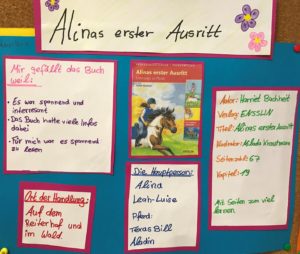 Alinas erster Ausritt
Mir gefällt das Buch
weil:
• Es war spannend und
interessant
• Das Buch hatte viele Infos
dabei
• Für mich war es spannend
zu lesen
Alinas erster Ausritt
Autor: Harriet Buchheit
Verlag: ENSSLIN
Titel: Alinas erster Ausritt
Seitenzahl: 67
Kapitel: 19
Mit Seiten zum viel
lernen.
Ort der Handlung:
Auf dem
Reiterhof und
im Wald.
Die Hauptperson:
Alina
Leah-Luise
Pferd:
Texas Bill
Aladin